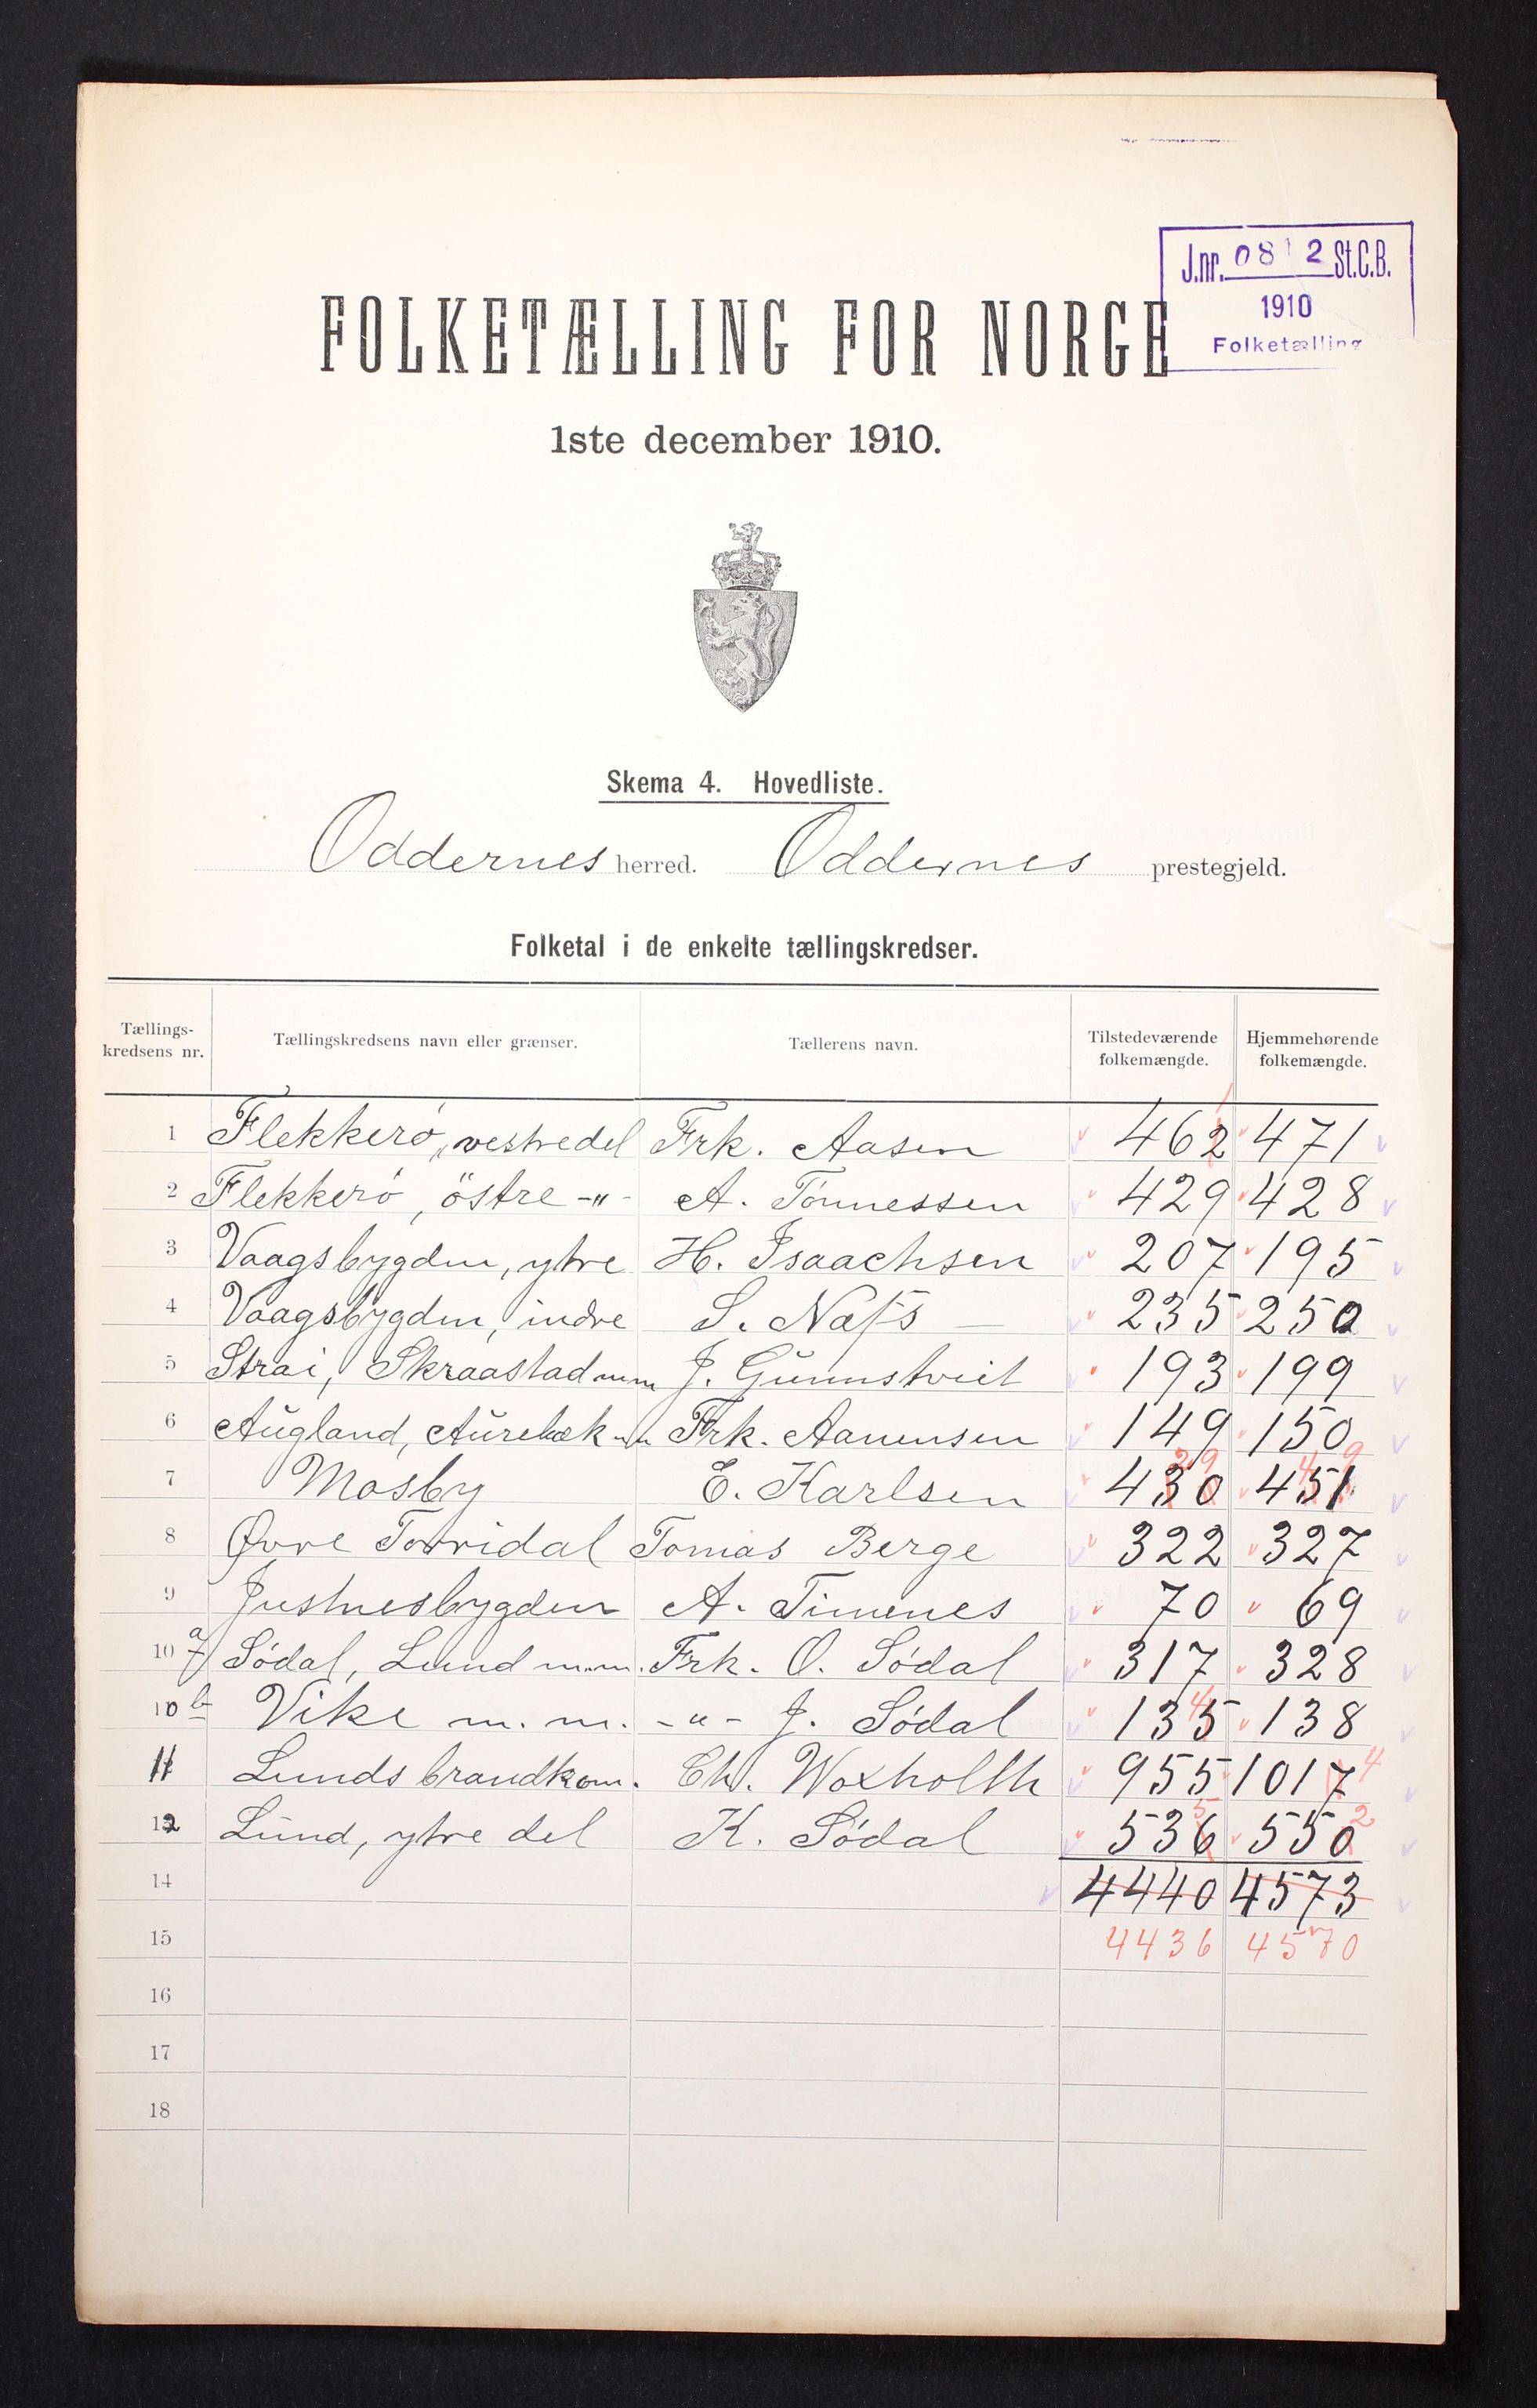 J.nr. 0812 St.C.B.
1910
Folketælling
FOLKETÆLLING FOR NORGE
1ste december 1910.
Skema 4. Hovedliste.
Oddernes herred. Oddernes prestegjeld.
Folketal i de enkelte tællingskredser.
Tællings-kredsens nr. Tællingskredsens navn eller grænser. Tællerens navn. Tilstedeværende folkemængde. Hjemmehørende folkemængde.
1 Flekkerö, vestre del Frk. Aasen 462 1 471
2 Flekkerö, östre -"- A. Tönnessen 429 428
3 Vaagsbygden, ytre H. Isaachsen 207 195
4 Vaagsbygden, indre S. Næss 235 250
5 Strai, Skraastad m m J. Gumnstveit 193 199
6 Augland, Aurebæk m Frk. Aanensen 149 150
7 Mosby E. Karlsen 430 29 451 49
8 Øvre Torridal Tomas Berge 322 327
9 Justnesbygden A. Timenes 70 69
10 a Södal, Lund m.m. Frk. O. Södal 317 328
10 b Vike m. m. -"- J. Södal 135 4 138
11 Lunds brandkom. Ch. Woxholth 955 1017 4
12 Lund, ytre del K. Södal 536 5 550 2
14 4440 4573
15 4436 4570
16
17
18